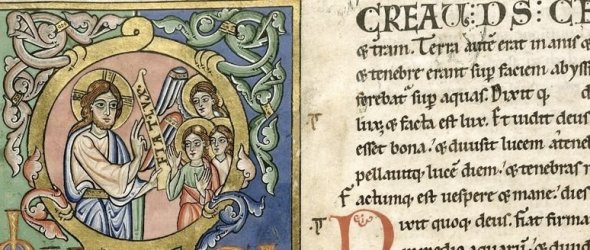 CREAU:DS:CE
& trām. Terra autē erat inanis &
& tenebre erant sup faciem abyss
ferebat sup aquas. Dixit q, d
lux. & facta est lux. Et uidit deus
esset bona. & diuisit lucem a tene
pellauitq; lucē diem. & tenebras n
Factumq; est uespere & mane. dies
Dixit quoq; deus. fiat firma
medio aquarū & diuid